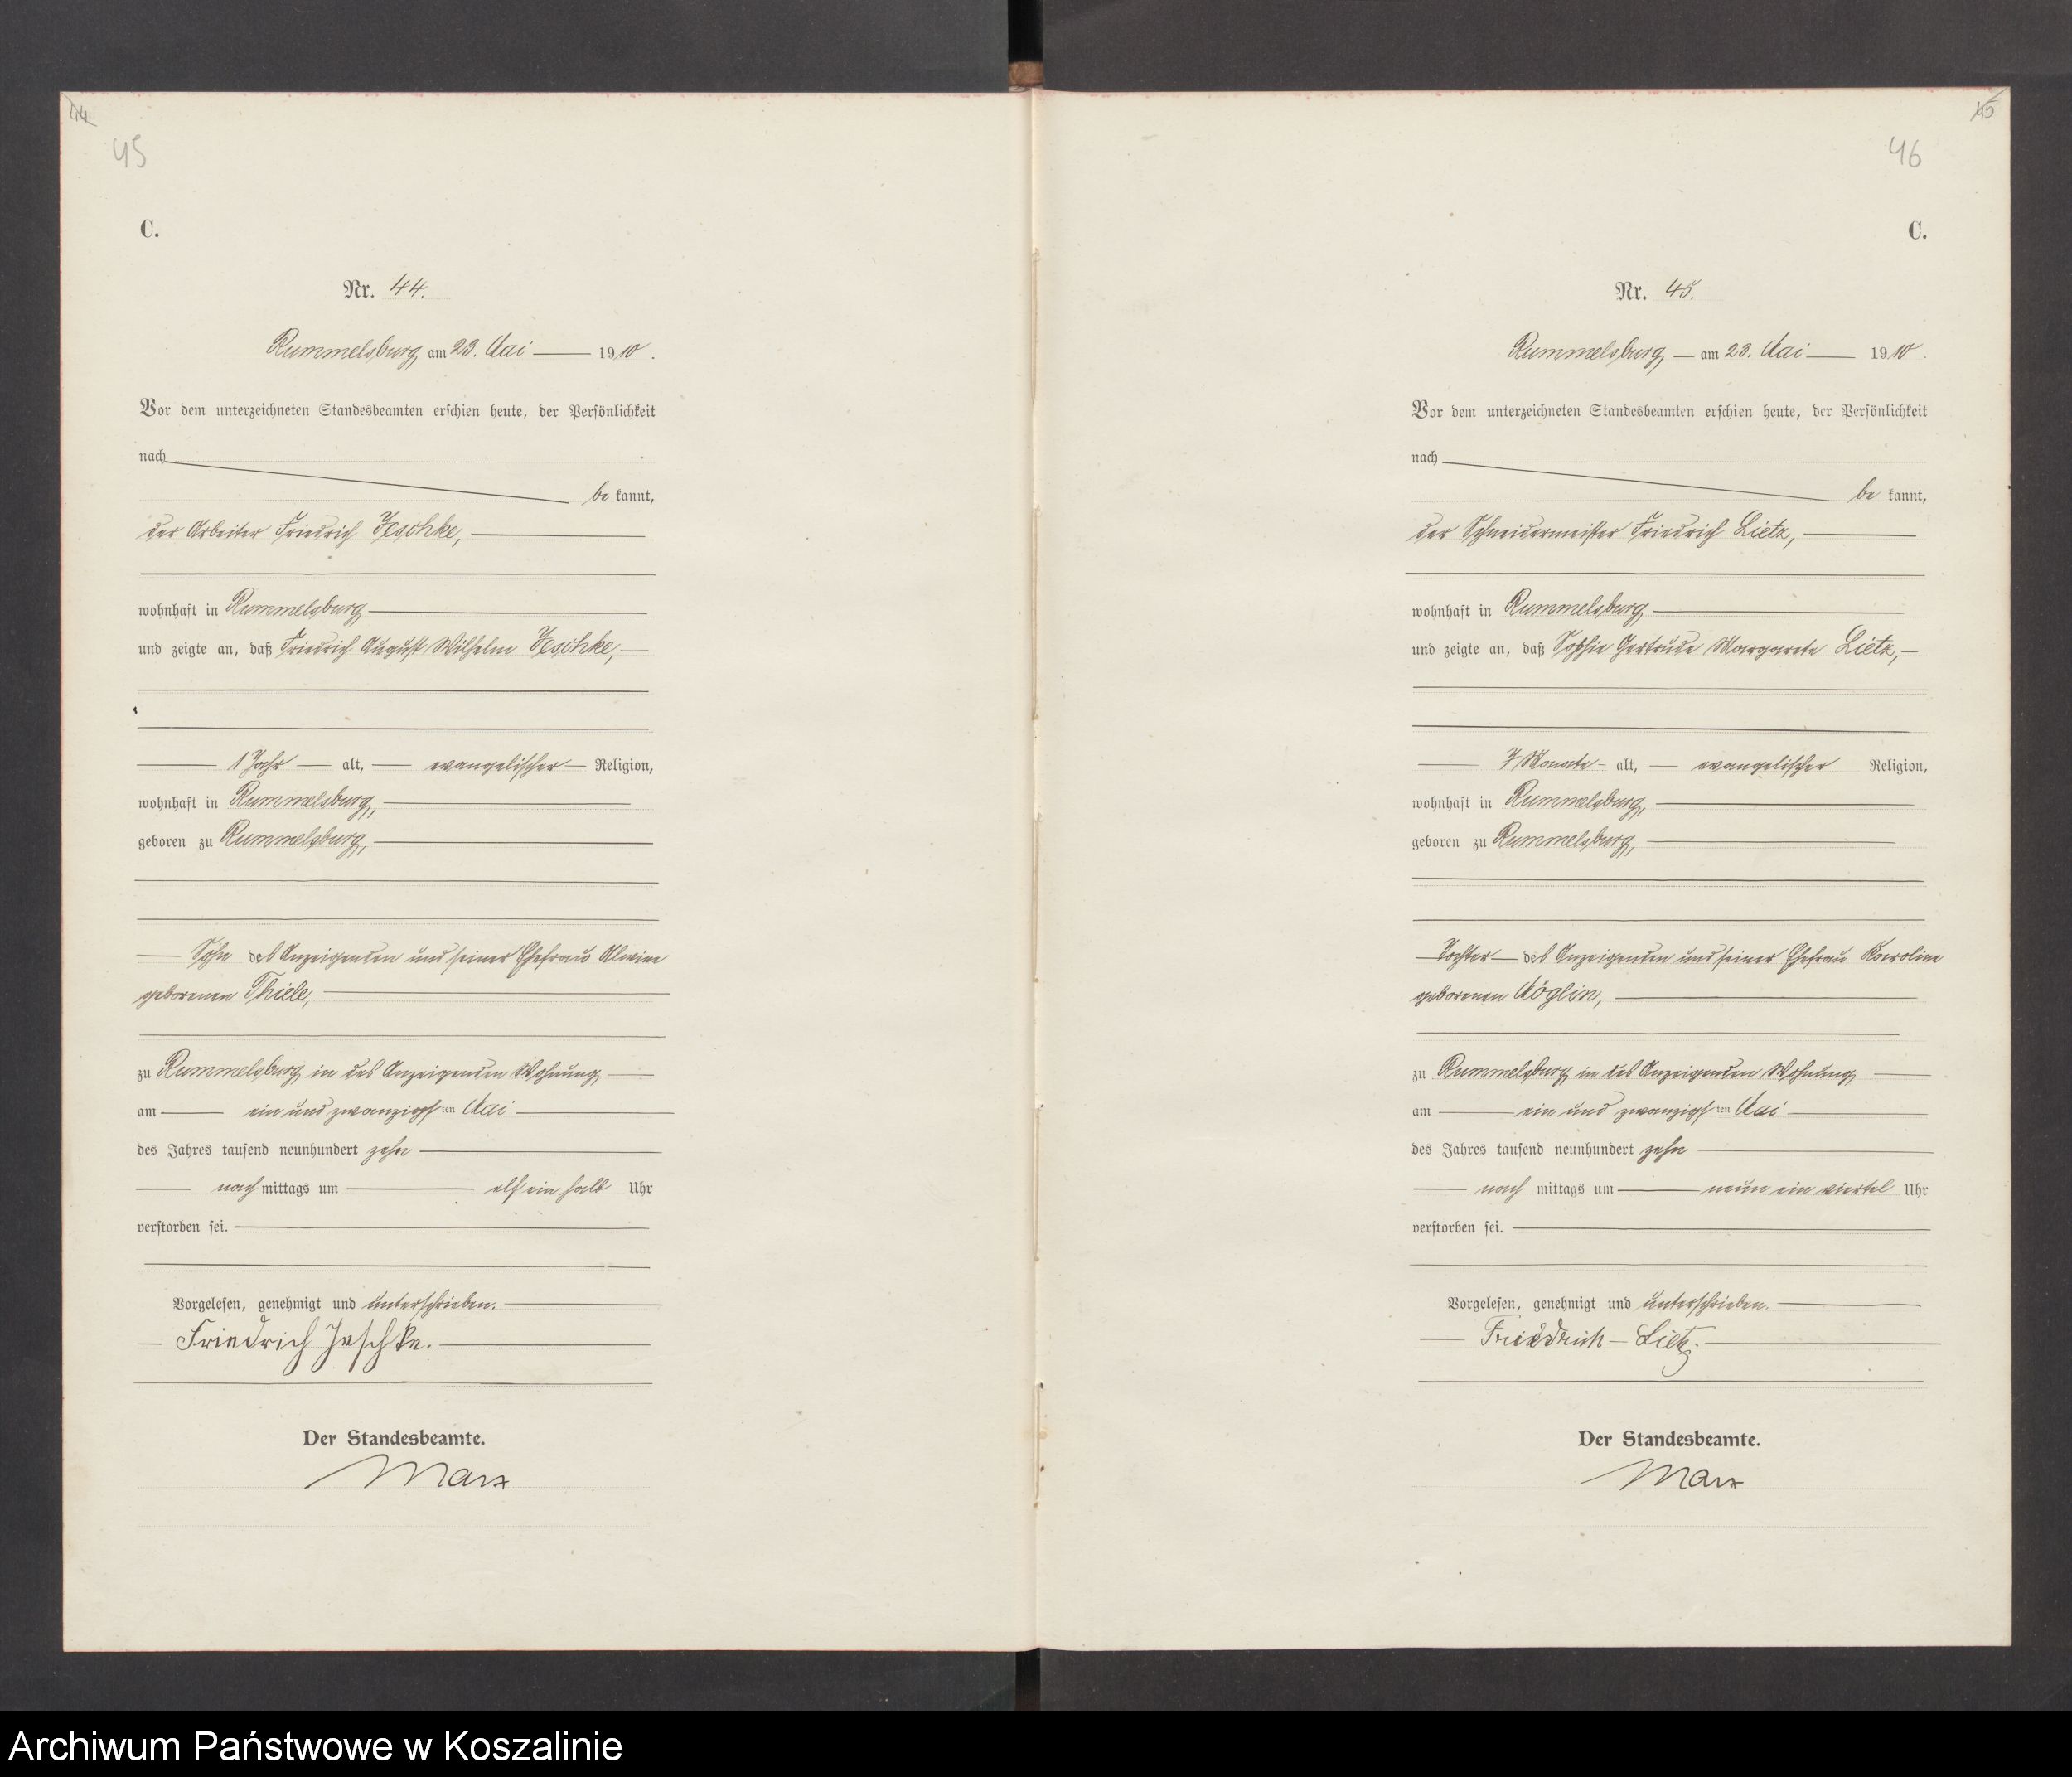 44
45
C.
Nr. 44.
Rummelsburg am 23. Mai 1910.
Vor dem unterzeichneten Standesbeamten erschien heute, der Persönlichkeit
nach
be kannt,
der Arbeiter Friedrich Jeschke,
wohnhaft in Rummelsburg
und zeigte an, daß Friedrich August Wilhelm Jeschke,
1 Jahr alt, evangelischer Religion,
wohnhaft in Rummelsburg,
geboren zu Rummelsburg,
Sohn des Anzeigenden und seiner Ehefrau Alwine
geborenen Thiele,
zu Rummelsburg in des Anzeigenden Wohnung
am ein und zwanzigsten Mai
des Jahres tausend neunhundert zehn
nach mittags um elf ein halb Uhr
verstorben sei.
Vorgelesen, genehmigt und unterschrieben.
Friedrich Jeschke.
Der Standesbeamte.
Marx
45
46
C.
Nr. 45.
Rummelsburg am 23. Mai 1910.
Vor dem unterzeichneten Standesbeamten erschien heute, der Persönlichkeit
nach
be kannt,
der Schneidermeister Friedrich Lietz,
wohnhaft in Rummelsburg
und zeigte an, daß Sophie Gertrude Margarete Lietz,
7 Monate alt, evangelischer Religion,
wohnhaft in Rummelsburg,
geboren zu Rummelsburg,
Tochter des Anzeigenden und seiner Ehefrau Karoline
geborenen Möglin,
zu Rummelsburg in des Anzeigenden Wohnung
am ein und zwanzigsten Mai
des Jahres tausend neunhundert zehn
nach mittags um neun ein viertel Uhr
verstorben sei.
Vorgelesen, genehmigt und unterschrieben.
Friedrich Lietz.
Der Standesbeamte.
Marx
Archiwum Państwowe w Koszalinie